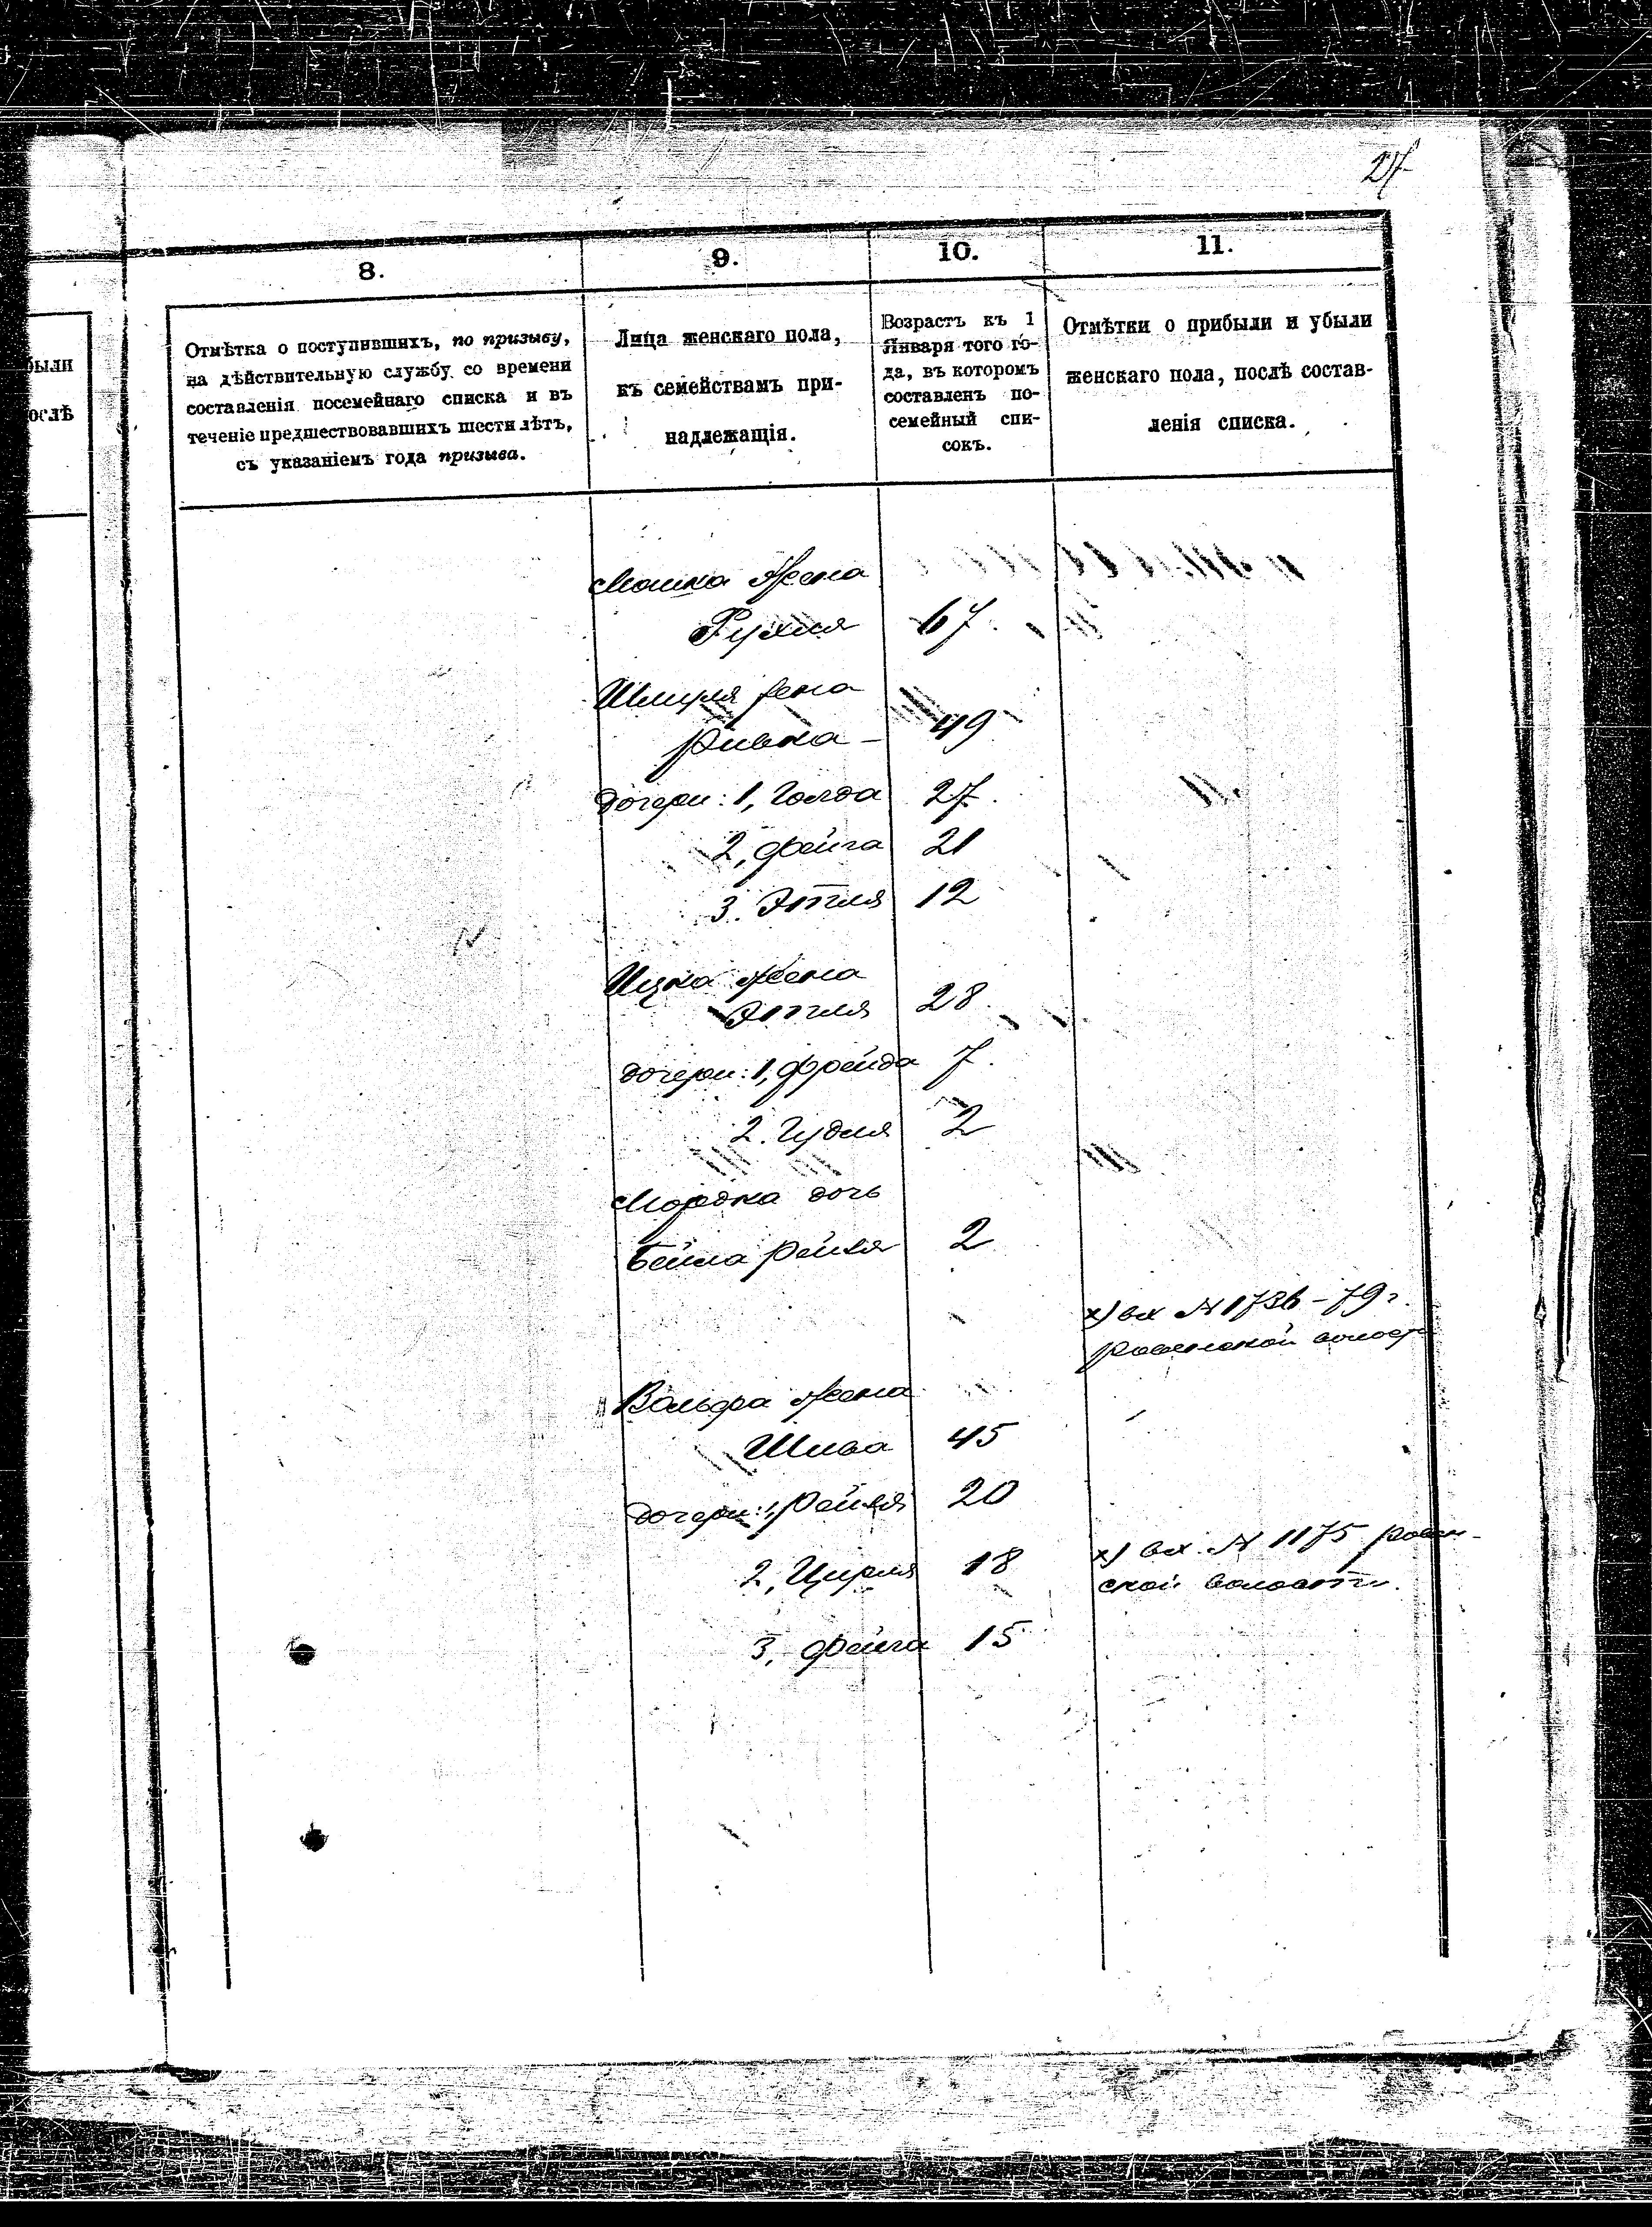 27
8.
9.
10.
11.
были
ослѣ
Отмѣтка о поступившихъ, по призыву,
на дѣйствительную службу со времени
составленія посемейнаго списка и въ
теченіе предшествовавшихъ шести лѣтъ,
съ указаніемъ года призыва.
Лица женскаго пола,
къ семействамъ при-
надлежащія.
Возрастъ къ 1
Января того го-
да, въ которомъ
составленъ по-
семейный спи-
сокъ.
Отмѣтки о прибыли и убыли
женскаго пола, послѣ состав-
ленія списка.
Мошка жена
Рухля 67.
Шмуля жена
Ривка - 49
дочери: 1, Голда 27.
2, Фейга 21
3. Этля 12
Ицка жена
Этля 28.
дочери: 1, Фрейда 7.
2. Гудля 2
Мордка дочь
Бейла Рейхля 2
х) вх № 1736 - 79 г.
Вольфа жена
Шива 45
дочери: 1, Рейхля 20
2, Цирля 18
х) вх. № 1175
ской волости.
3, Фейга 15